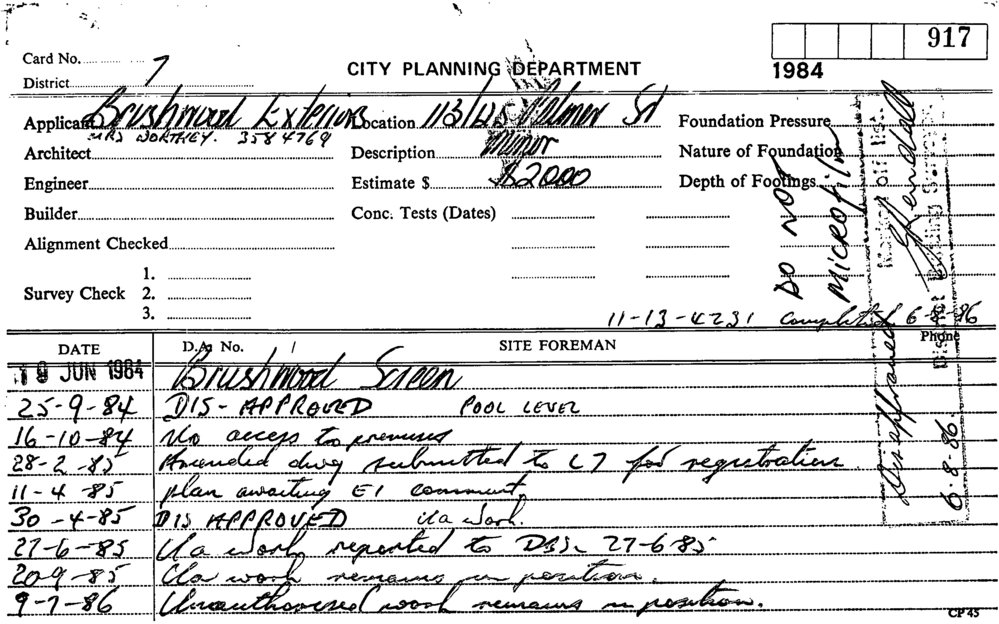 917
Card No. 7
District
CITY PLANNING DEPARTMENT
1984
Applicant Brushwood Exteriors Location 113/125 Palmer St Foundation Pressure
MRS WORTHEY. 3584769
Architect Description Minor Nature of Foundation
Engineer Estimate $ $2000 Depth of Footings
Builder Conc. Tests (Dates)
Alignment Checked
1.
Survey Check 2.
3.
DO NOT
MICROFILM
Marked off list
District Building Surveyor
Disapproved
6.8.86.
11-13-4231 completed 6-8-86
DATE D.A. No. / SITE FOREMAN Phone
19 JUN 1984 Brushwood Screen
25-9-84 DIS-APPROVED POOL LEVEL
16-10-84 No access to premises
28-2-85 Amended dwg submitted to L7 for registration
11-4-85 plan awaiting E1 comment
30-4-85 DISAPPROVED Ua work.
27-6-85 Ua work reported to DBS. 27-6-85
20-9-85 Ua work remains in position.
9-7-86 Unauthorised work remains in position.
CP 45